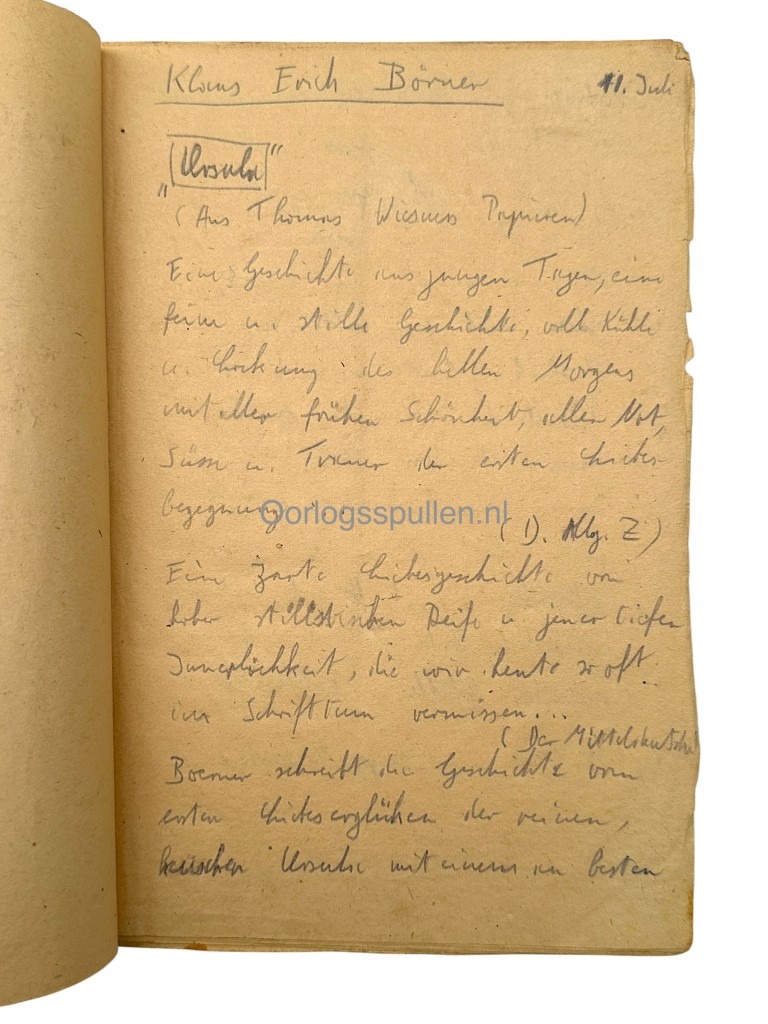 Klaus Erich Börner 11. Juli
„Ursula"
(Aus Thomas Wiesners Papieren)
Eine Geschichte aus jungen Tagen, eine
feine u. stille Geschichte, voll Kühle
u. Lockung des hellen Morgens
mit aller frühen Schönheit, aller Not,
Süsse u. Trauer der ersten Liebes-
begegnung...
Oorlogsspullen.nl
(D. Allg. Z)
Eine zarte Liebesgeschichte von
hoher stilistischen Reife u jener tiefen
Innerlichkeit, die wir heute so oft
im Schrifttum vermissen...
(Der Mitteldeutsche)
Boerner schreibt die Geschichte vom
ersten Liebeserglühen der reinen,
keuschen Ursula mit einem an besten